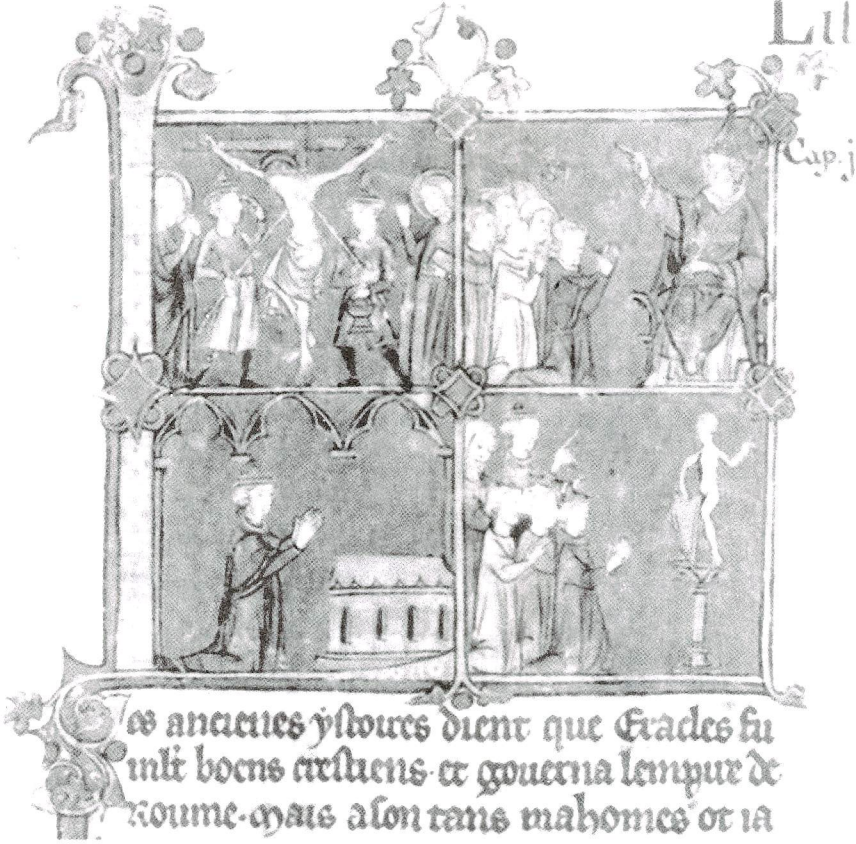 Lil
Cap. j
es ancienes ystoires dient que Eracles fu
mlt boens crestiens. et gouerna lempire de
Roume. Mais a son tans mahomes ot ia